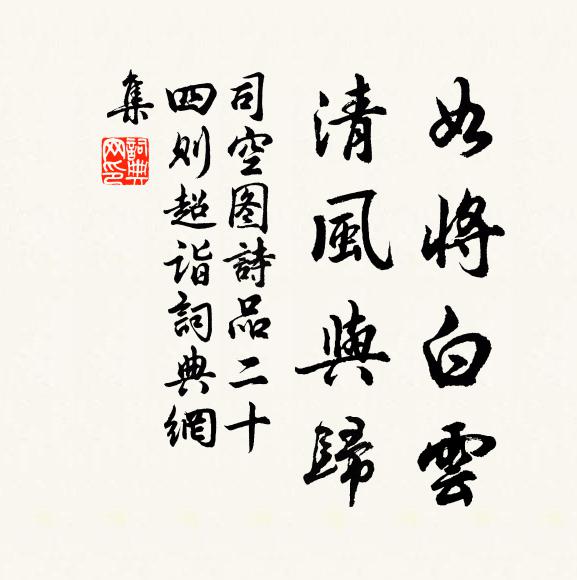 如將白雲
清風與歸
司空图詩品二十
四则超诣詞典網
集
詞典
网印